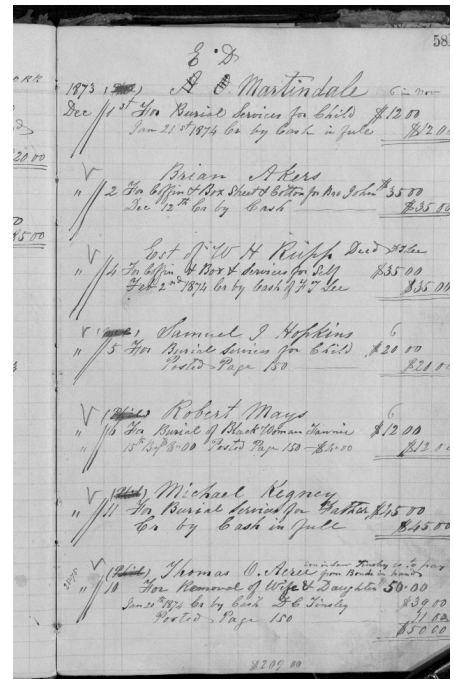 58
E. D
1873 Martindale 6 in Nov
Dec 1st For Burial Services for Child $12.00
Jan 21st 1874 Cr by Cash in full $12.00
Brian Akers
" 2 For Coffin & Box Sheet & Cotton for Bro John $35.00
Dec 12th Cr by Cash $35.00
Est of W H Rupp Decd
" 4 For Coffin & Box & Services for Self $35.00
Feb 2nd 1874 Cr by Cash of F T Lee $35.00
Samuel J Hopkins 6
" 5 For Burial Services for Child $20.00
Posted Page 150 $20.00
Robert Mays 6
" 6 For Burial of Black Woman $12.00
15th 8.00 Posted Page 150 $12.0
Michael Kegney
" 11 For Burial Services for Father $45.00
Cr by Cash in full $45.00
Thomas O. Acree Tinsley is to pay
from Bonds in hand
" 10 For Removal of Wife & Daughter 50.00
Jan 20th 1874 Cr by Cash D. C. Tinsley $39.00
Posted Page 150
$50.00
$209.00
20.00